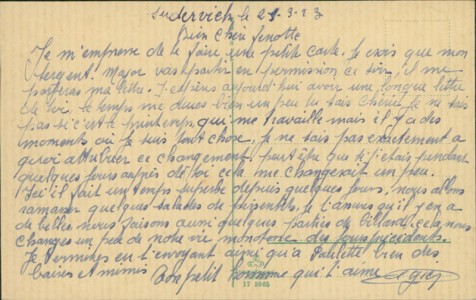 le 21-3-23
Bien Chère Finotte
Je m'empresse de te faire une petite carte. Je crois que mon
sergent Major vas partir en permission ce soir, il me
portera ma lettre. J'espère aujourd'hui avoir une longue lettre
de toi, le temps me dures bien un peu tu sais Chérie Je ne sais
pas si c'est le printemps qui me travaille mais il y a des
moments où je suis tout chose, je ne sais pas exactement a
quoi attribuer ce changement, peut être que si j'etais pendant
quelques jours auprès de toi cela me changerait un peu.
Ici il fait un temps superbe depuis quelques jours, nous allons
ramasser quelques salades de pissenlits, je t'assures qu'il y en a
de belles nous faisons aussi quelques parties de billard, cela nous
changes un peu de notre vie monotone des jours précédents.
Je termines en t'envoyant ainsi qu'a Paulette bien des
baises et mimis Ton petit homme qui t'aime